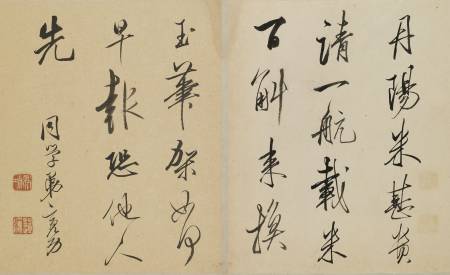 丹陽米甚貴
請一航載米
百斛來換
玉筆架如何
早報恐他人
先
同學